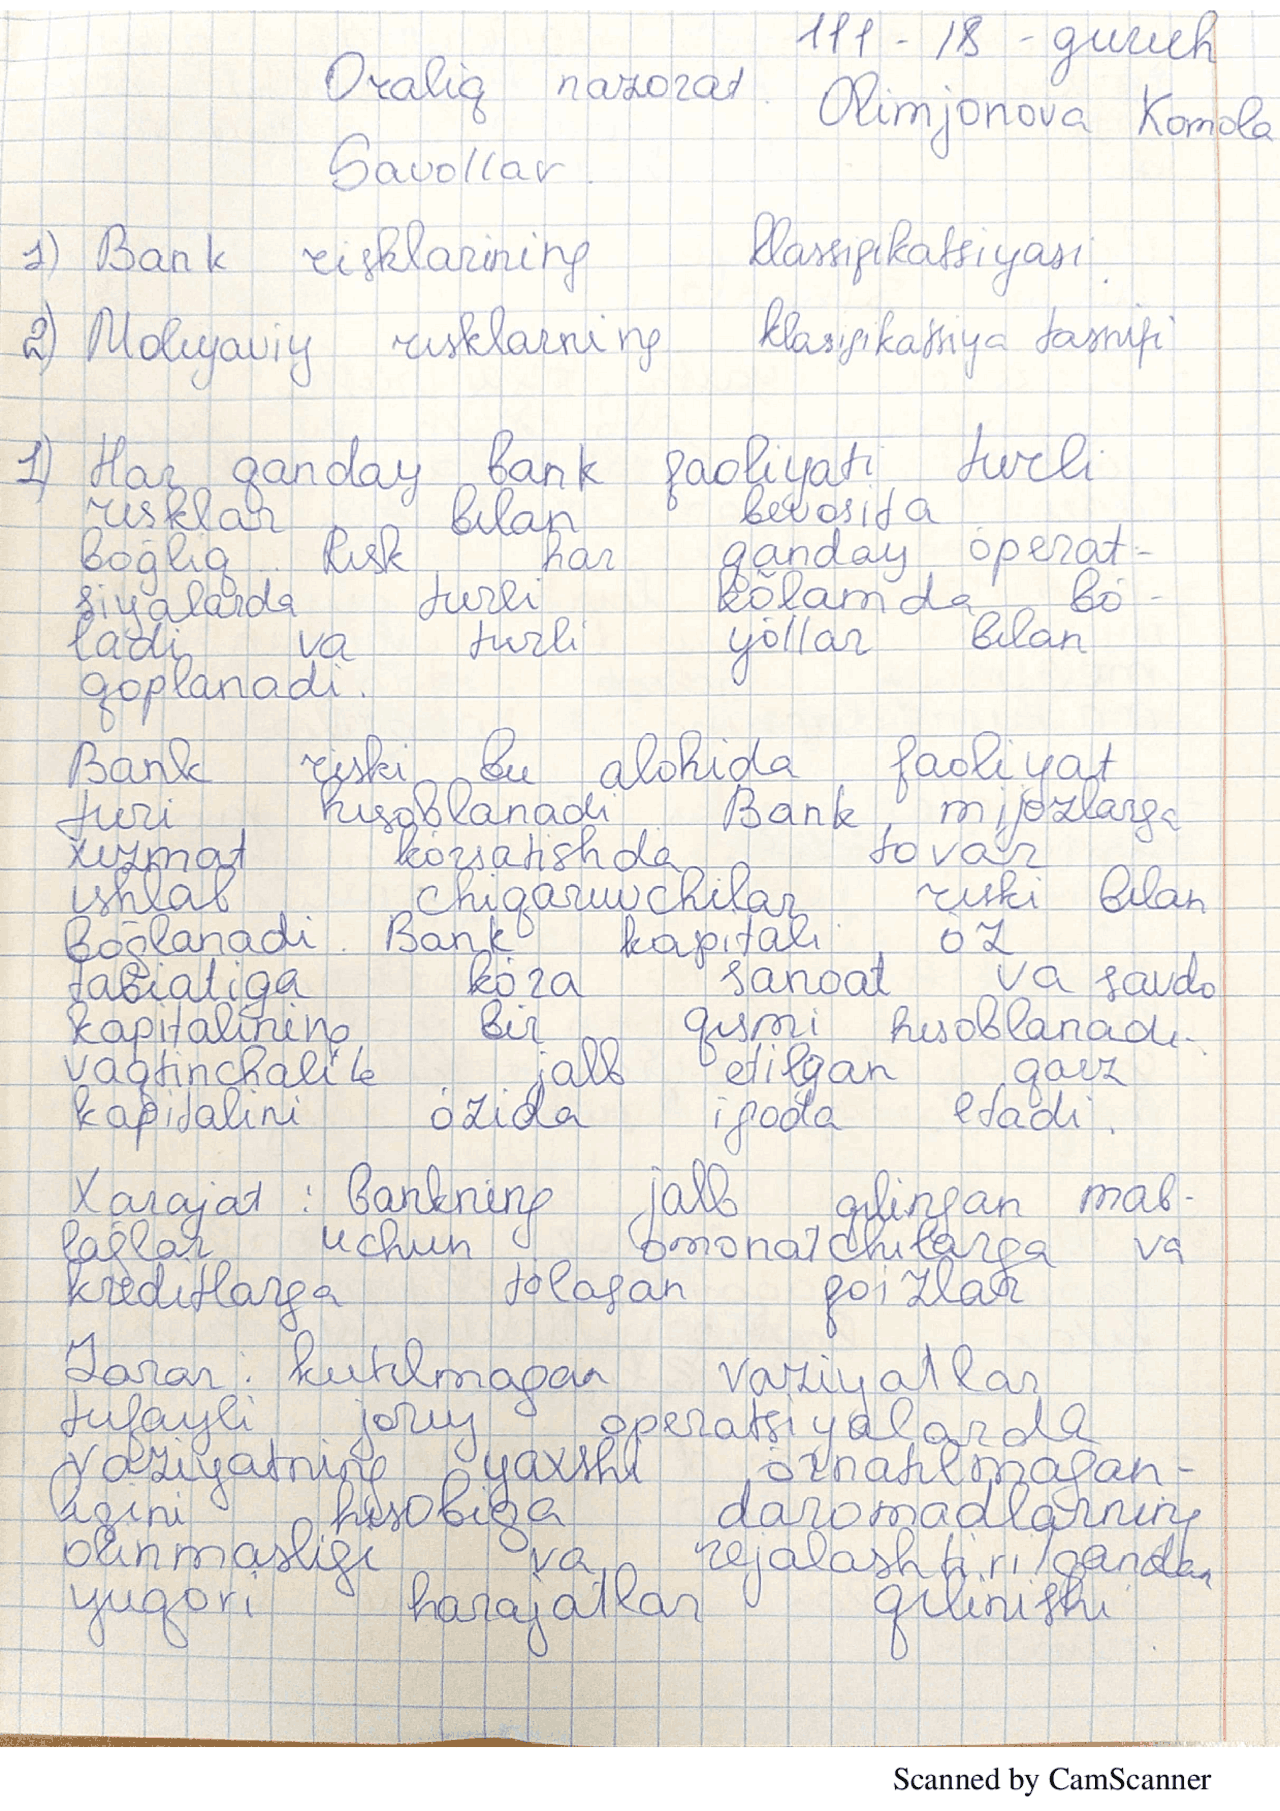 111 - 18 - guruh
Oraliq nazorat. Olimjonova Komola
Savollar.
1) Bank risklarining klassifikatsiyasi.
2) Moliyaviy risklarning klasifikatsiya tasnifi
1) Har qanday bank faoliyati turli
risklar bilan bevosita
bog'liq. Risk har qanday operat-
siyalarda turli ko'lamda bo'-
ladi va turli yo'llar bilan
qoplanadi.
Bank riski bu alohida faoliyat
turi hisoblanadi. Bank mijozlarga
xizmat ko'rsatishda tovar
ishlab chiqaruvchilar riski bilan
bog'lanadi. Bank kapitali o'z
tabiatiga ko'ra sanoat va savdo
kapitalining bir qismi hisoblanadi.
vaqtinchalik jalb etilgan qarz
kapitalini o'zida ifoda etadi.
Xarajat: bankning jalb qilingan mab-
lag'lar uchun omonatchilarga va
kreditlarga to'lagan foizlar
Zarar: kutilmagan vaziyatlar
tufayli joriy operatsiyalarda
vaziyatning yaxshi o'rnatilmagan-
ligini hisobiga daromadlarning
olinmasligi va rejalashtirilgandan
yuqori harajatlar qilinishi
Scanned by CamScanner